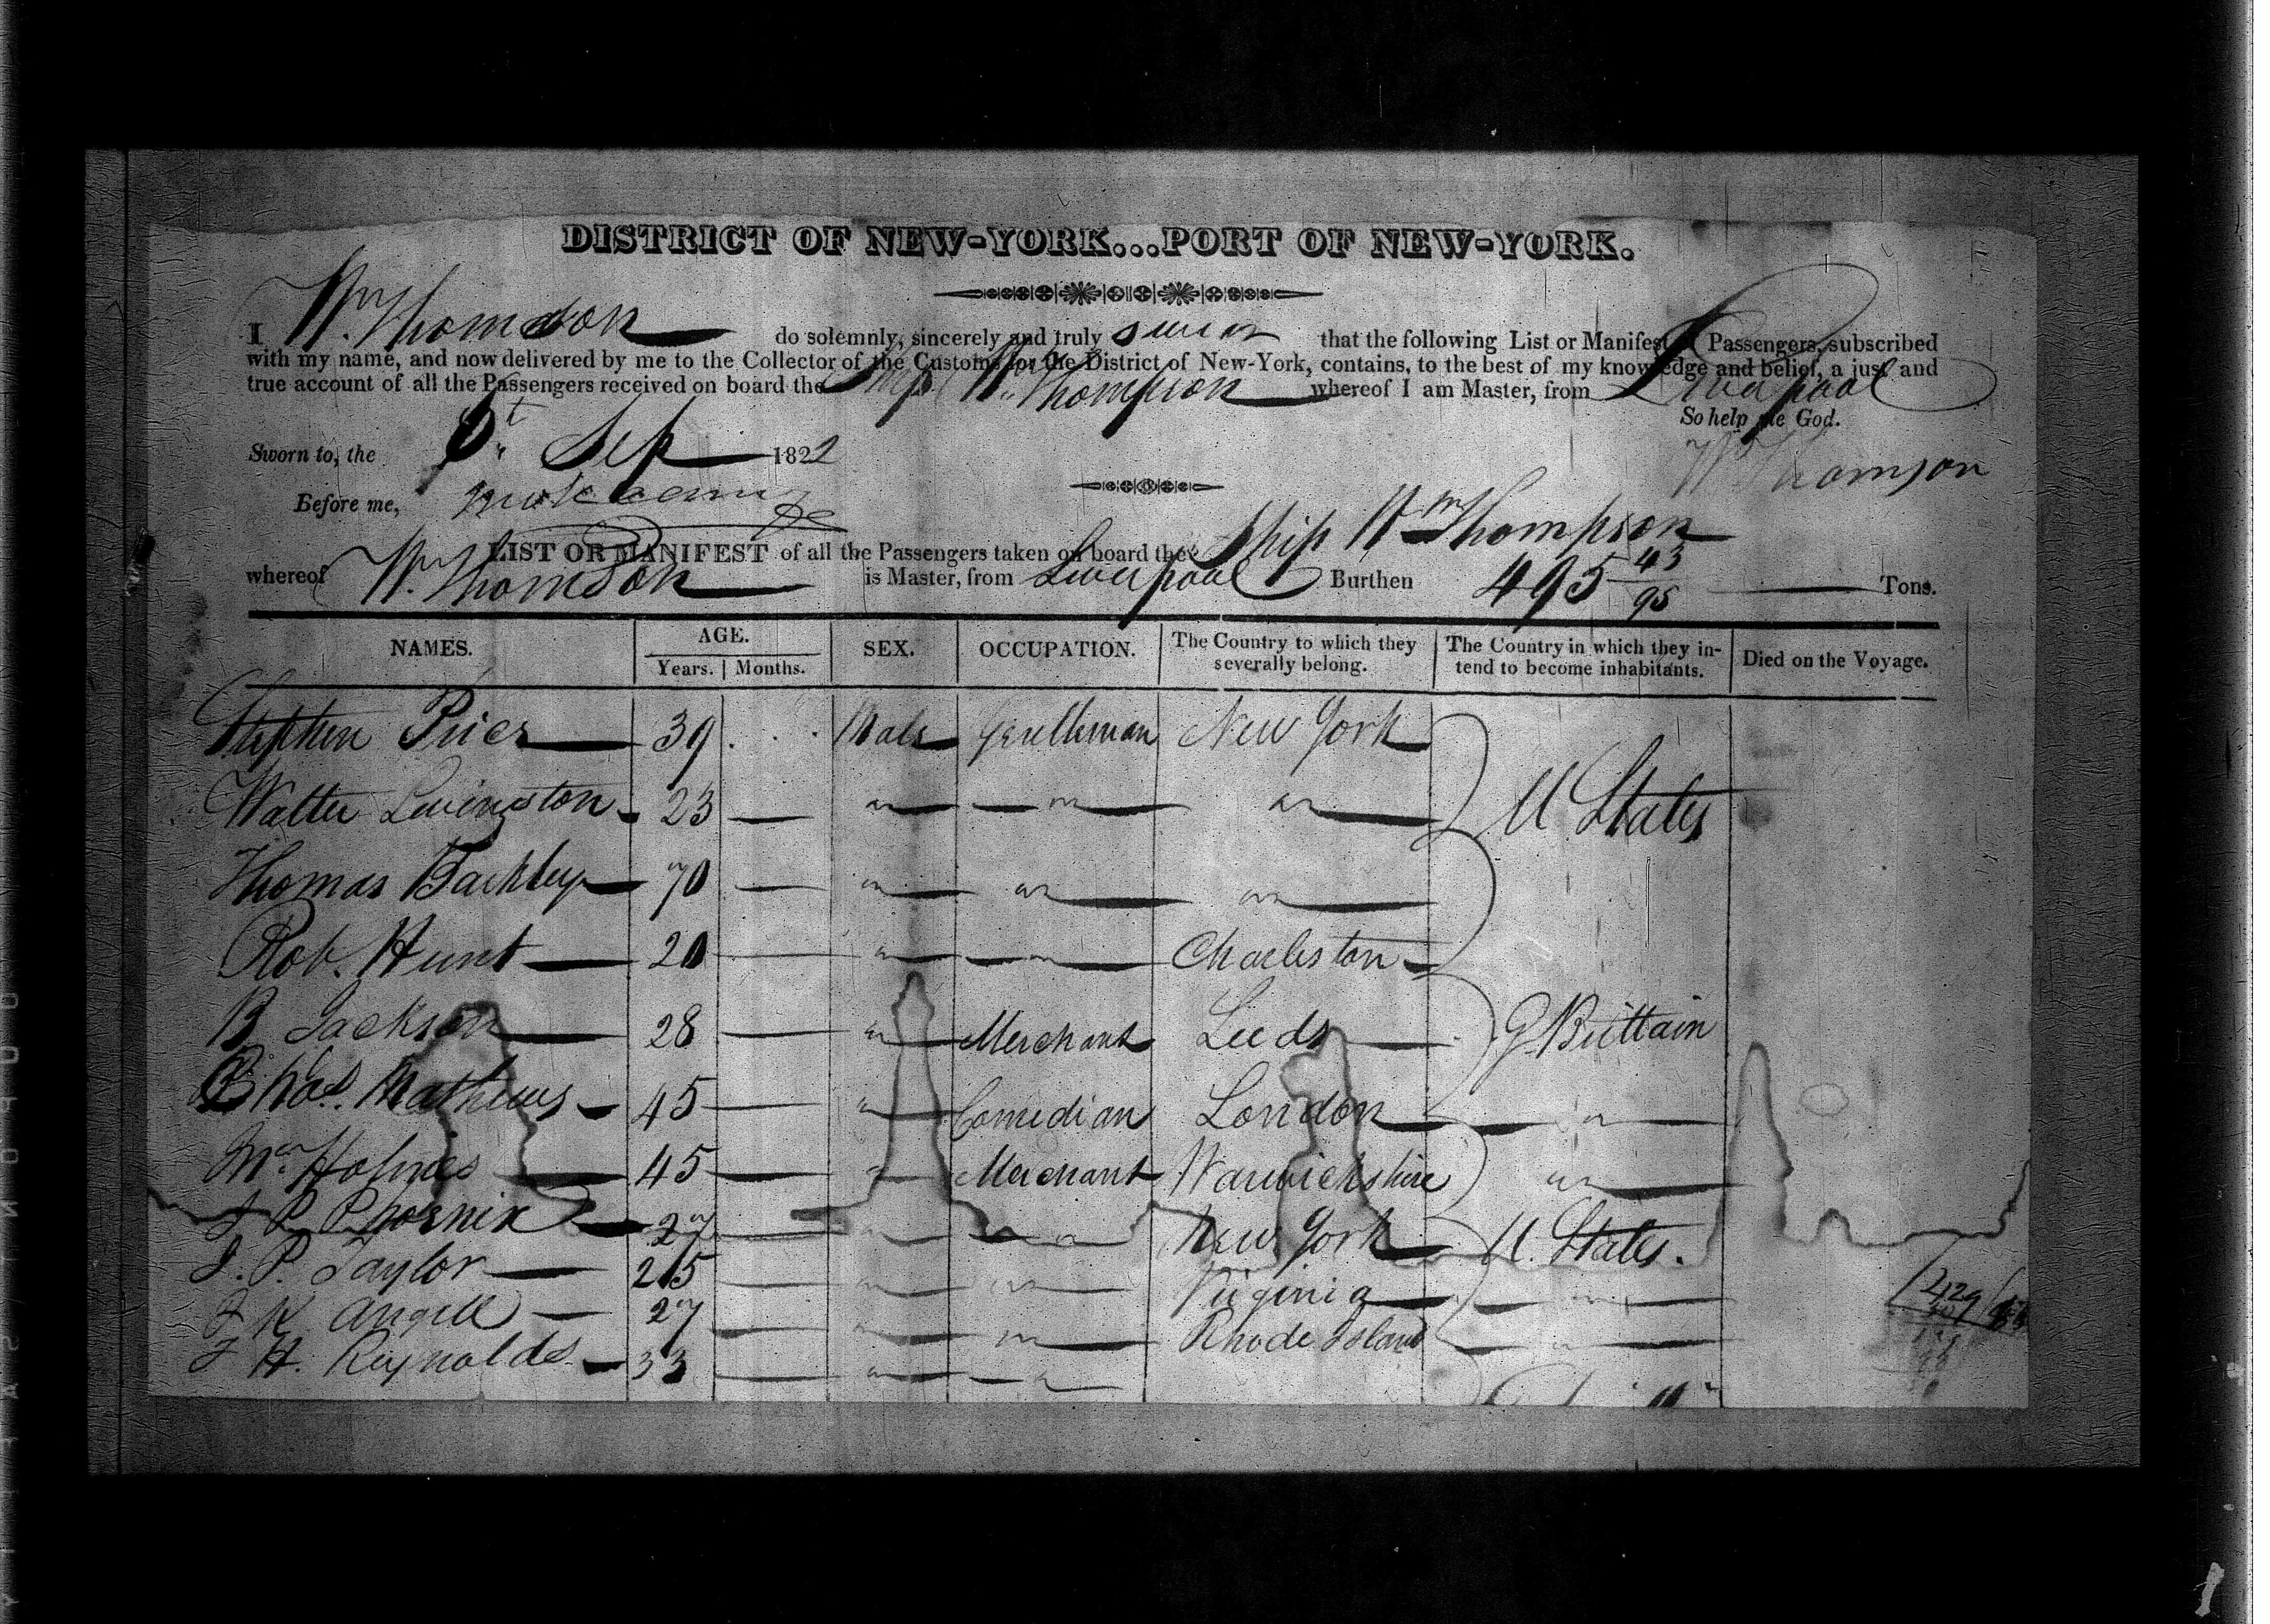 DISTRICT OF NEW-YORK...PORT OF NEW-YORK.
I Wm Thomson do solemnly, sincerely and truly swear that the following List or Manifest of Passengers, subscribed
with my name, and now delivered by me to the Collector of the Customs for the District of New-York, contains, to the best of my knowledge and belief, a just and
true account of all the Passengers received on board the Ship Wm Thompson whereof I am Master, from Liverpool
So help me God.
Sworn to, the Sep 1822
Wm Thomson
Before me,
LIST OR MANIFEST of all the Passengers taken on board the Ship Wm Thompson
whereof Wm Thomson is Master, from Liverpool Burthen 495 43/95 Tons.
NAMES. AGE. SEX. OCCUPATION. The Country to which they severally belong. The Country in which they intend to become inhabitants. Died on the Voyage.
Years. Months.
Stephen Price 39 Male Gentleman New York
Walter Livingston 23 " " " U States
Thomas Barkley 70 " " "
Rob. Hunt 20 " " Charleston
B Jackson 28 " Merchant Leeds G Brittain
Chas. Mathews 45 " Comedian London "
Mr. Holmes 45 " Merchant Warwickshire "
J P Phoenix 27 " " New York U. States.
J. P. Taylor 25 " " Virginia "
J K Angell 27 " " Rhode Island "
J H. Reynolds 33 " "